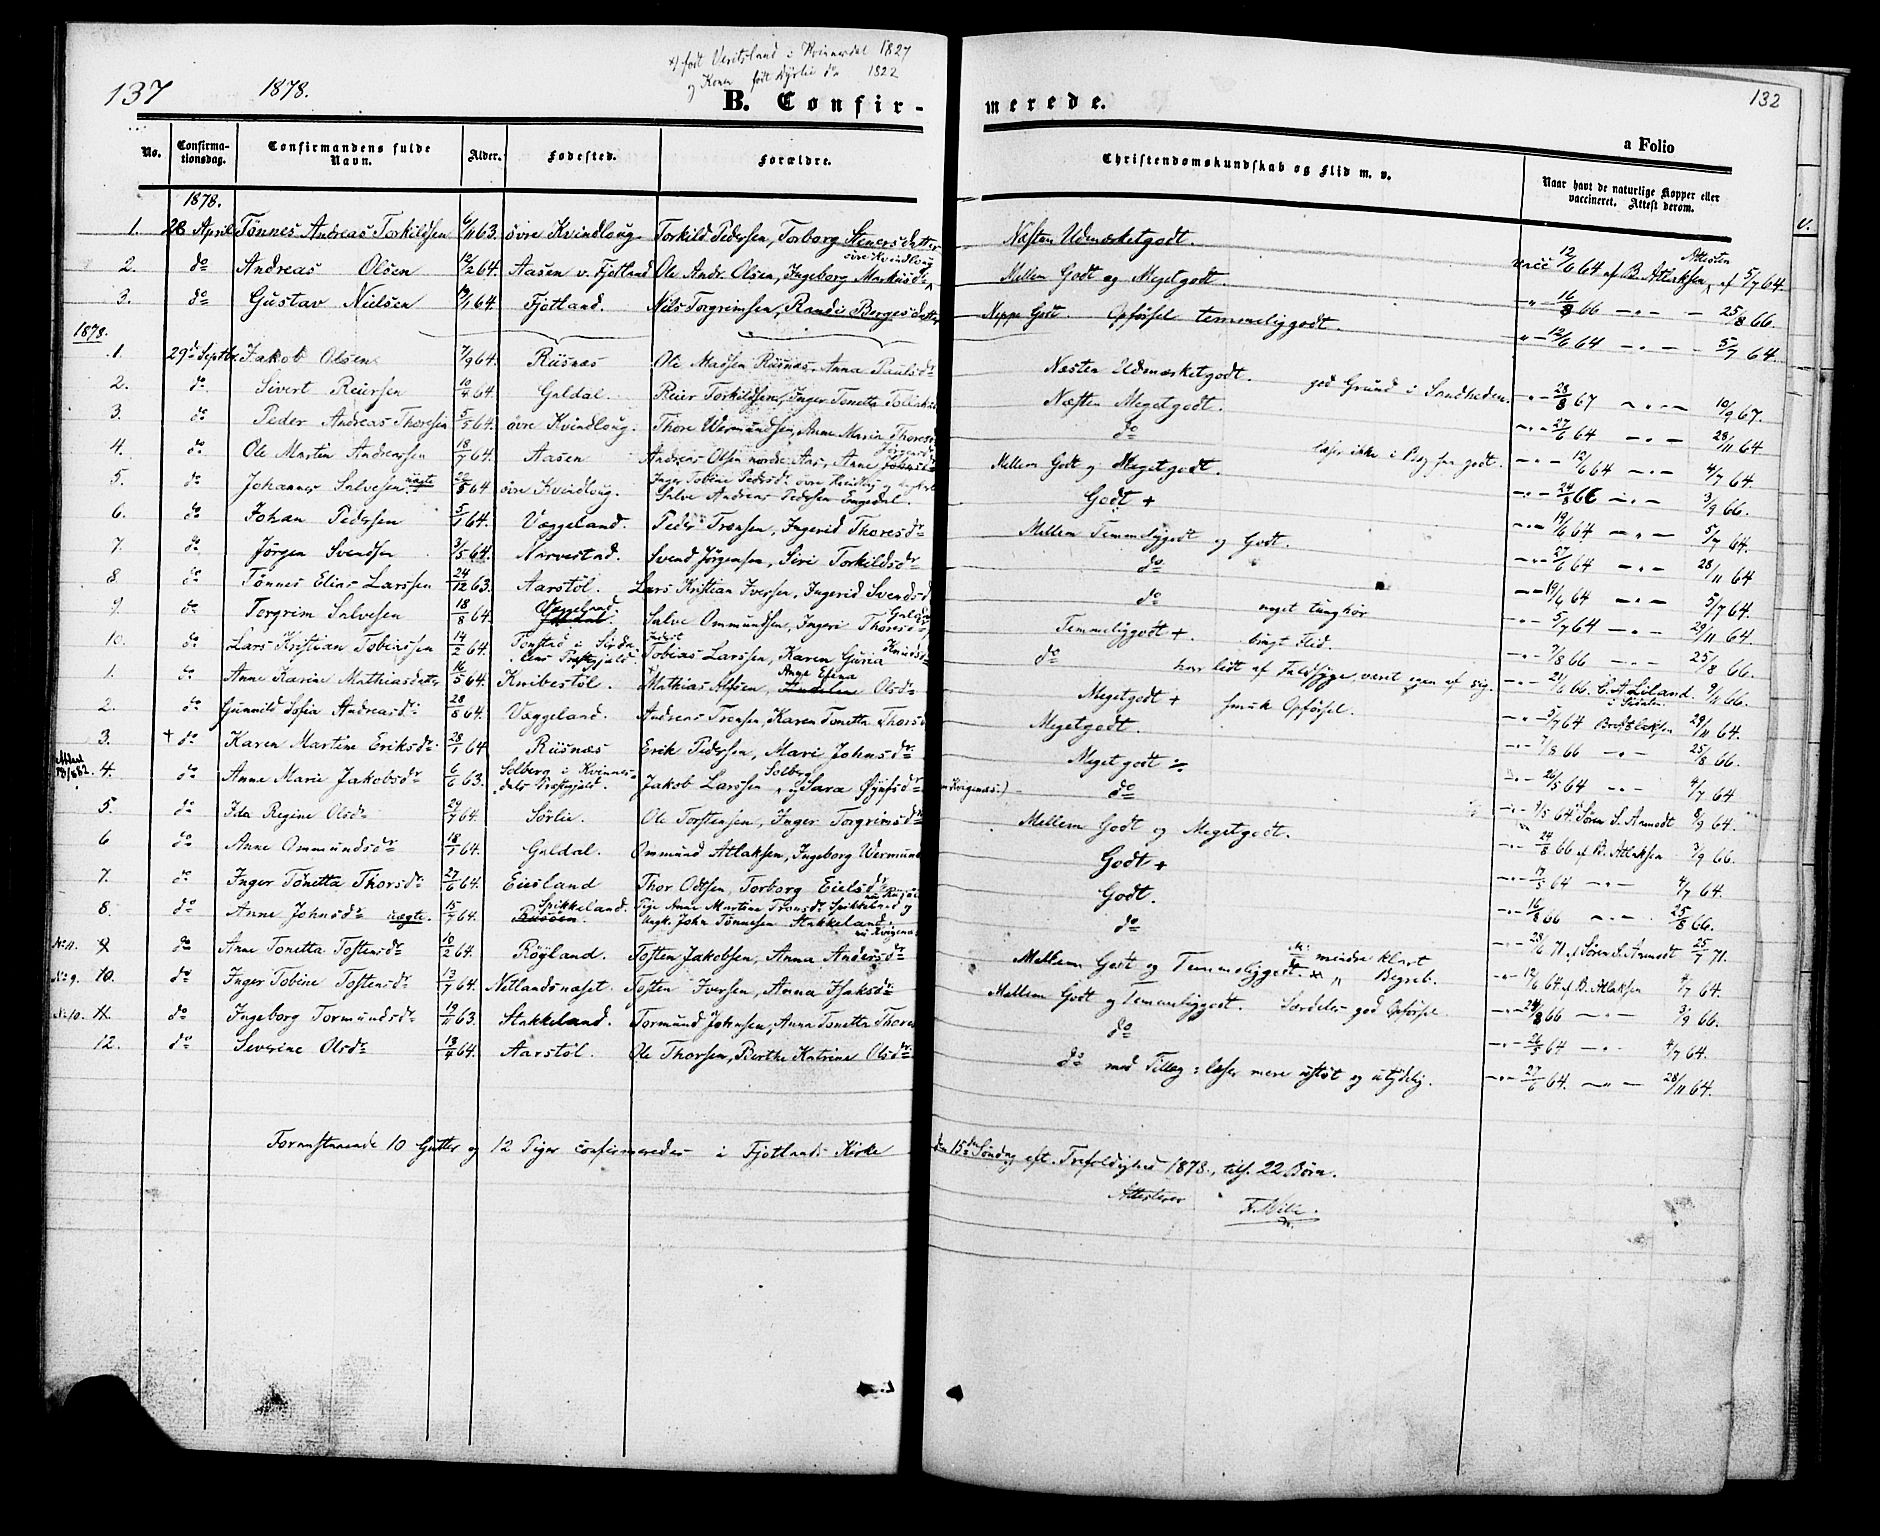 137 1878. x) født Veritsland i Kvinesdal 1827
og Konen født Dyrlie do 1822
B. Confir-merede. 132
a Folio
No. Confirma-tionsdag. Confirmandens fulde Navn. Alder. Fødested. Forældre. Christendomskundskab og Flid m. v. Naar havt de naturlige Kopper eller vaccineret. Attest derom.
1878.
1. 28 April Tønnes Andreas Torkildsen 6/11 63. øvre Kvindloug Torkild Pedersen, Torborg Stenersdatter Næsten Udmærketgodt. vacc 12/6 64 af B. Atlaksen, Attesten af 5/7 64.
2. do Andreas Olsen 12/2 64. Aasen v. Fjotland Ole Andr. Olsen, Ingeborg Markusdr øvre Kvindloug Mellem Godt og Megetgodt. 16/8 66 25/8 66.
3. do Gustav Nielsen 64. Fjotland. Nils Torgrimsen, Randi Bergesdatter Neppe Godt. Opførsel temmeliggodt. 12/6 64 5/7 64.
1878.
1. 29de Septbr. Jakob Olsen 7/9 64. Risnæs Ole Madsen Risnæs, Anna Paulsdr Næsten Udmærketgodt. god Grund i Sandheden. 28/8 67 10/9 67.
2. do Sivert Reiersen 10/4 64. Guldal. Reier Torkildsen, Inger Tonetta Tollaksdr Næsten Megetgodt. 27/6 64 28/11 64
3. do Peder Andreas Thoresen 5/5 64. øvre Kvindloug. Thore Wermundsen, Anne Maria Thoresdr do læser ikke i Bog saa godt. 12/6 64 4/7 64.
4. do Ole Martin Andreassen 18/7 64. Aasen Andreas Olsen nordre Aas, Anne Jørgensdr Mellem Godt og Megetgodt. 24/8 66 3/9 66.
5. do Johannes Salvesen uægte 22/5 64 øvre Kvindloug. Inger Tobine Pedersdr øvre Kvindloug og Ungkarl Salve Andreas Pedersen Engedal. Godt + 19/6 64 5/7 64.
6. do Johan Pedersen 5/1 64. Væggeland. Peder Tronsen, Ingerid Thoresdr Mellem Temmeliggodt og Godt. 27/6 64 28/11 64
7. do Jørgen Svendsen 3/5 64. Narvestad. Svend Jørgensen, Siri Torkildsdr do 19/6 64 5/7 64.
8. do Tønnes Elias Larssen 24/12 63. Aarstøl. Lars Kristian Iversen, Ingerid Svendsdr do noget tunghør 5/7 64 29/11 64.
9. do Torgrim Salvesen 18/8 64. Væggeland. Salve Ommundsen, Ingeri Thoresdr Guldal Temmeliggodt +. brugt Flid. 7/8 66 25/8 66.
10. do Lars Kristian Tobiassen 14/2 64. Tonstad i Sirdalens Præstegjeld. Tobias Larssen, Karen Guria Knudsdr do har lidt af Faldsyge, været egen af sig. 21/6 66. C. A. Liland i Siredalen. 9/11 66.
1. do Anne Karine Mathiasdatter 16/5 64. Knibestøl. Mathias Alfsen, Anne Elina Olsdr Megetgodt + smuk Opførsel. 5/7 64 B. Atlaksen 29/11 64.
2. do Gunnild Sofia Andreasdr 28/8 64. Væggeland. Andreas Tronsen, Karen Tonetta Thorsdr Megetgodt. 7/8 66 25/8 66.
3. + do Karen Martine Eriksdr 28/1 64 Risnæs Erik Pedersen, Mari Johnsdr. Megetgodt ÷ 26/5 64 4/7 64.
Attest 13/5 82. 4. do Anne Marie Jakobsdr 6/6 63. Solberg i Kvinnesdals Præstegjeld. Jakob Larssen Solberg x) og Sara Øynfsdr do 9/5 64. Søren S. Aamodt 8/9 64.
5. do Ida Regine Olsdr 29/7 64. Sørlie. Ole Torstensen, Inger Torgrimsdr Mellem Godt og Megetgodt. 24/8 66 af B. Atlaksen 3/9 66.
6 do Anne Ommundsdr 18/1 64. Guldal. Ommund Atlaksen, Ingeborg Wermundsdr Godt + 17/5 64 4/7 64.
7. do Inger Tonetta Thorsdr 27/6 64. Eiesland Thor Odtsen, Torborg Eielsdr Godt. 16/8 66 25/8 66.
8. do Anne Johnsdr uægte. 15/7 64. Spikkeland. Pige Anne Martine Tronsdr Spikkeland og Ungk. John Tønnesen Stakkeland. do 28/6 71 af Søren S. Aamodt 25/7 71.
No 11. 9 do Anne Tonetta Tostensdr 10/2 64. Røyland. Tosten Jakobsen, Anna Andersdr Mellem Godt og Temmeliggodt. mindre klart Begreb. 12/6 64 af B. Atlaksen 4/7 64.
No 9. 10. do Inger Tobine Tostensdr 13/7 64. Netlandsnæset. Tosten Iversen, Anna Isaksdr Mellem Godt og Temmeliggodt. Særdeles god Opførsel. 24/8 66 3/9 66.
No 10. 11. do Ingeborg Tormundsdr 19/11 63. Stakkeland. Tormund Johnsen, Anna Tonetta Thores do 26/5 64 4/7 64.
12. do Severine Olsdr 13/4 64. Aarstøl. Ole Thorsen, Berthe Katrine Olsdr do med Tillæg: læser mere ustøt og utydelig. 27/6 64. 28/11 64.
Foranstaaende 10 Gutter og 12 Piger confirmeredes i Fjotlands Kirke den 15de Søndag eft. Trefoldighed 1878., tils. 22 Børn.
Attesterer F. Wille.